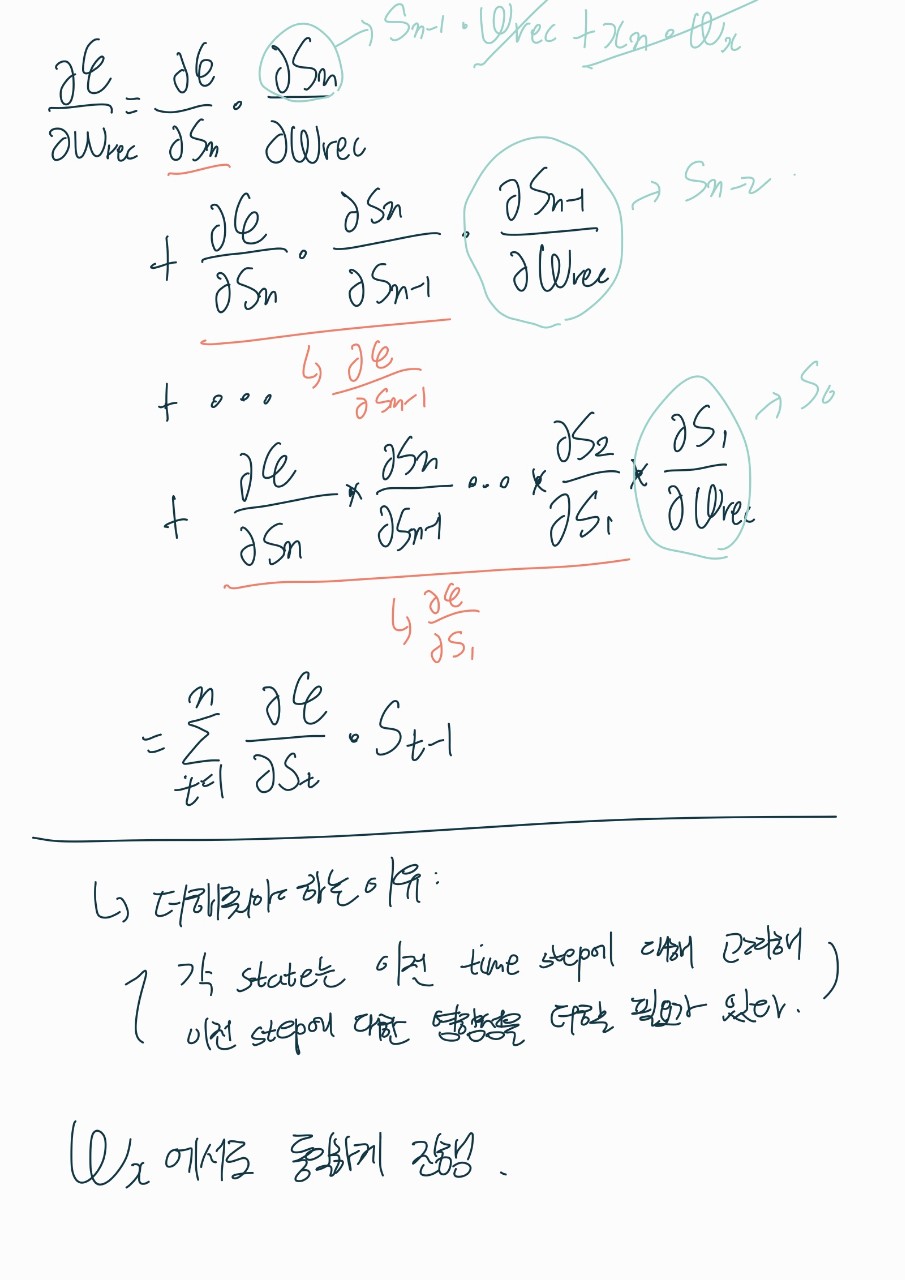 ∂ℰ/∂Wrec = ∂ℰ/∂Sn · ∂Sn/∂Wrec → Sn-1 · Wrec + xn · Wx
+ ∂ℰ/∂Sn · ∂Sn/∂Sn-1 · ∂Sn-1/∂Wrec → Sn-2
↳ ∂ℰ/∂Sn-1
+ ...
+ ∂ℰ/∂Sn × ∂Sn/∂Sn-1 ... × ∂S2/∂S1 × ∂S1/∂Wrec → S0
↳ ∂ℰ/∂S1
= Σ t=1 n ∂ℰ/∂St · St-1
↳ 더해줘야 하는 이유:
각 state는 이전 time step에 대해 고려해
이전 step에 대한 영향성을 더할 필요가 있다.
Wx 에서도 동일하게 진행.